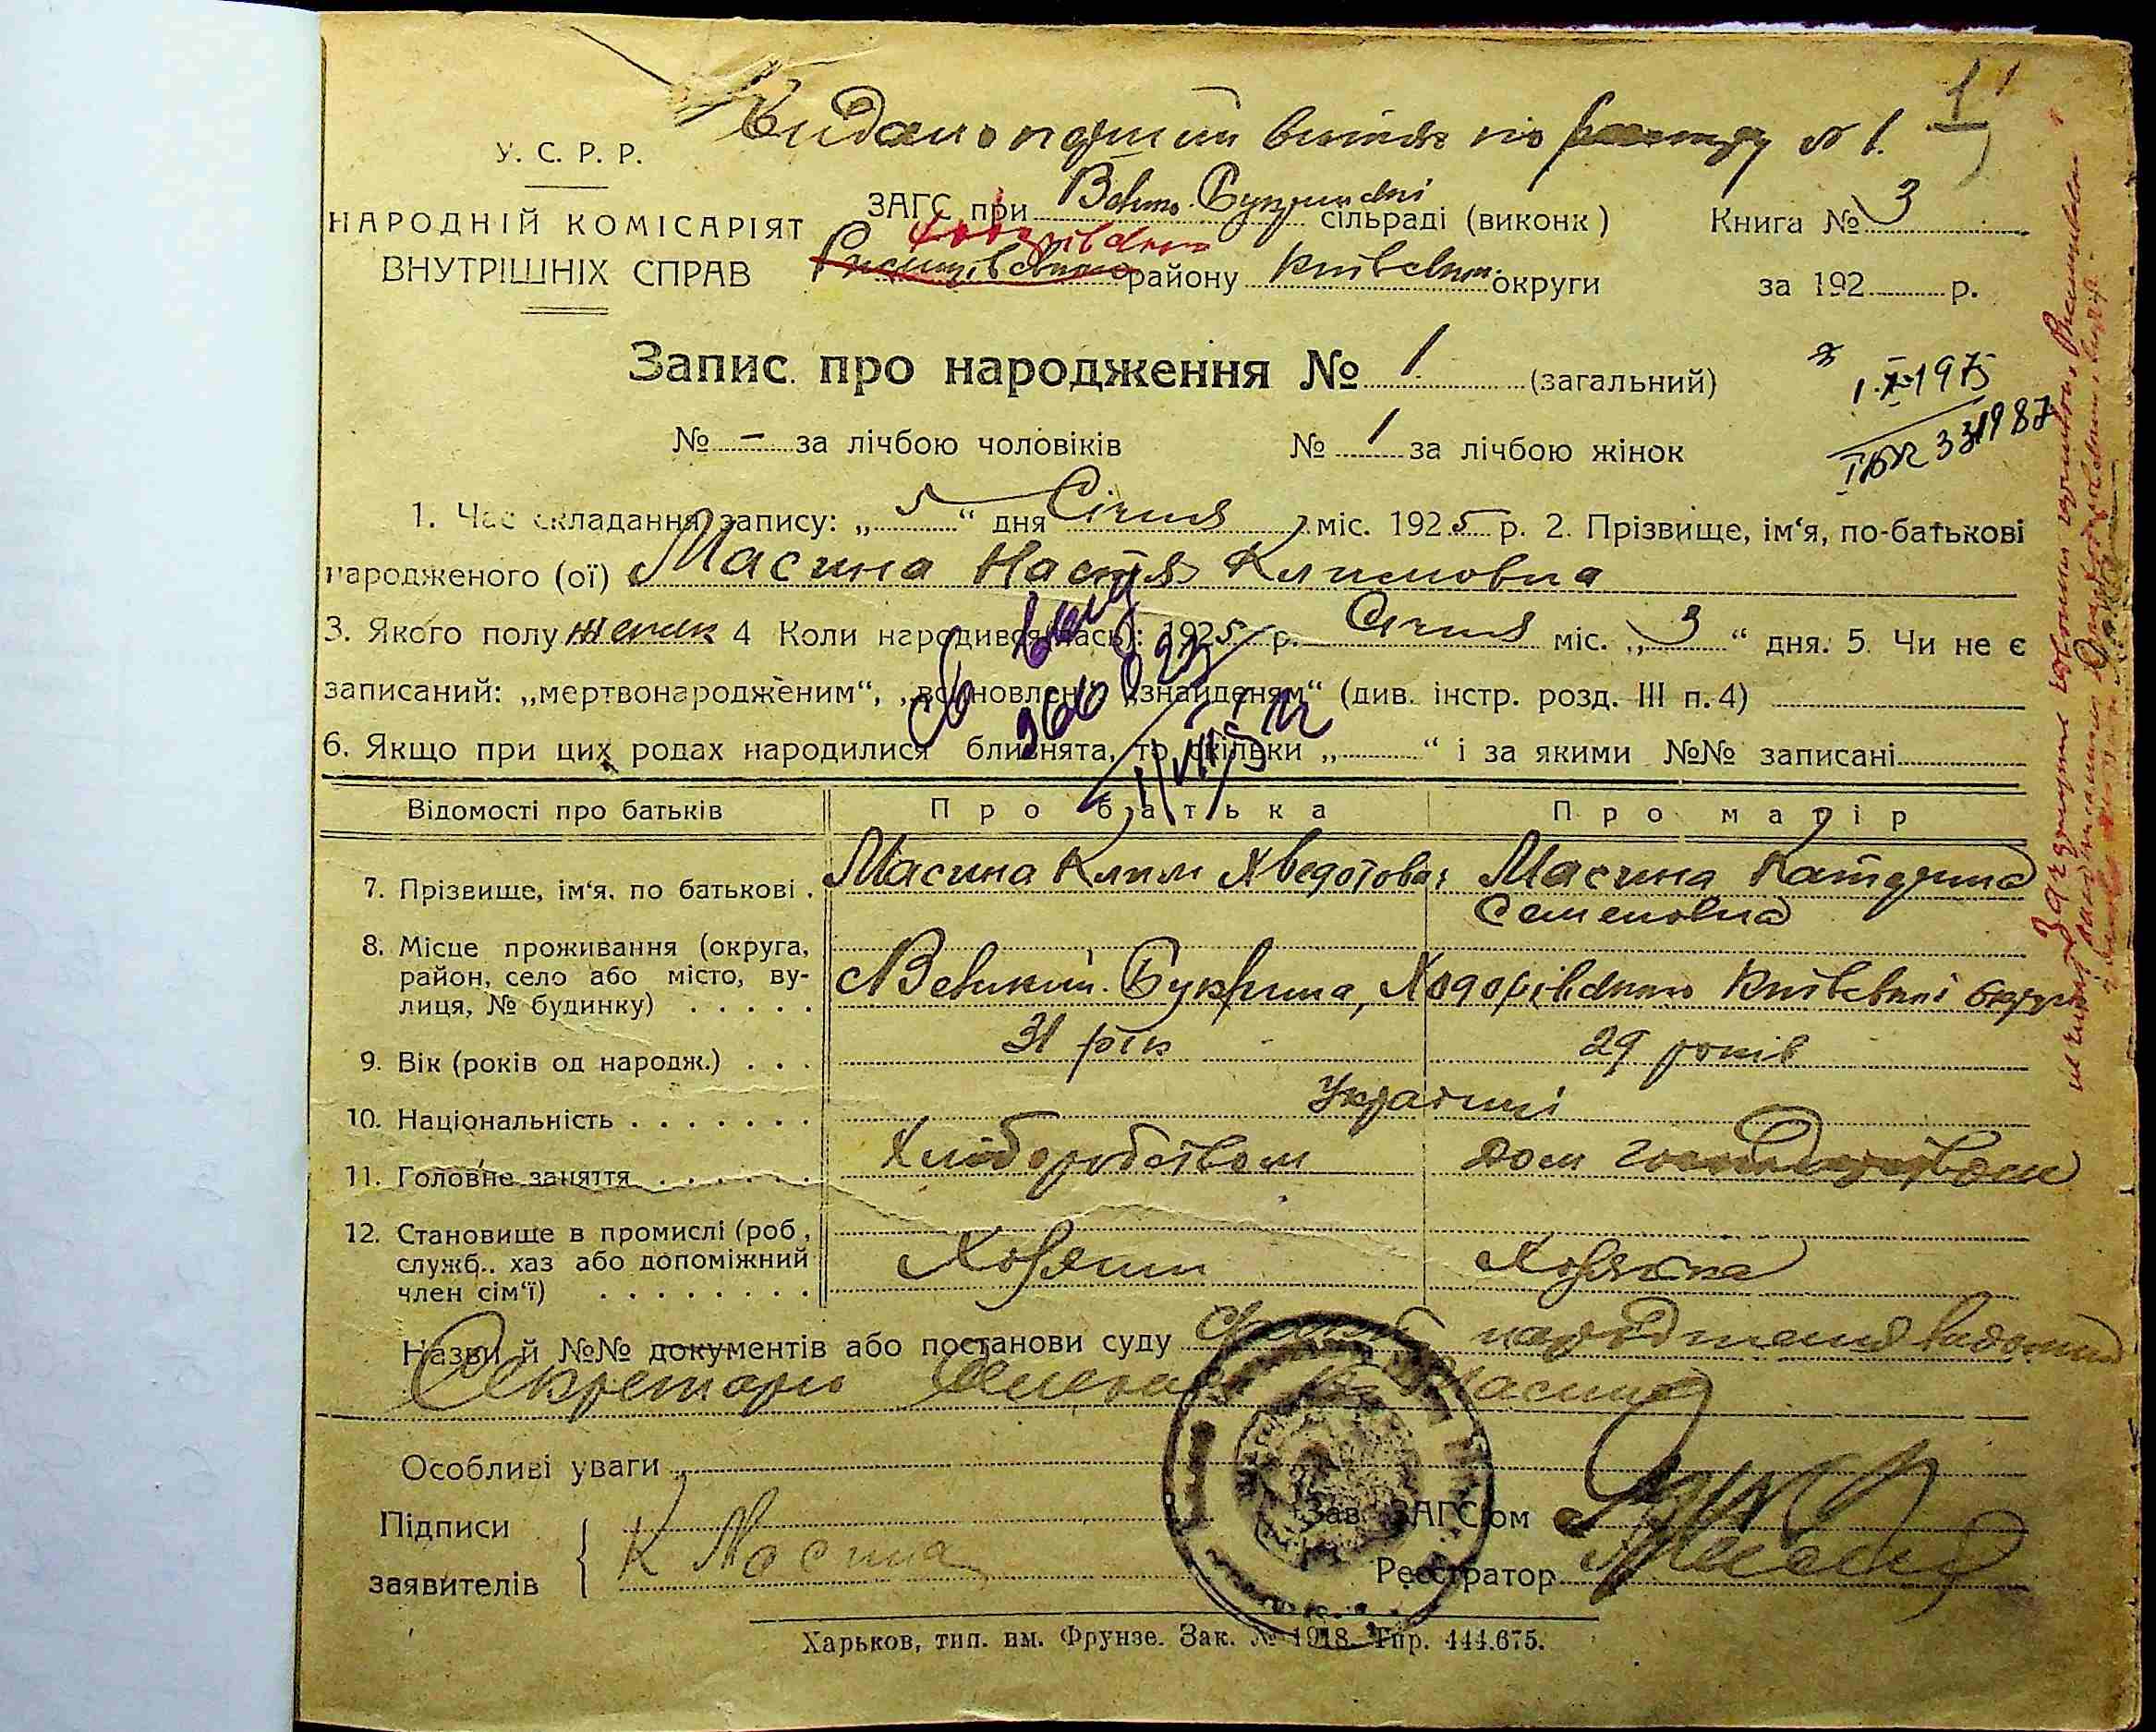 1
Видано перший витяг по реєстру № 1.
У. С. Р. Р.
НАРОДНІЙ КОМІСАРІЯТ
ВНУТРІШНІХ СПРАВ
ЗАГС при Велико Букринські сільраді (виконк)
Книга № 3
Ходорівського
Ржищівського району Київської округи
за 192 р.
Запис про народження № 1 (загальний)
1.X 1975
1987
№ - за лічбою чоловіків № 1 за лічбою жінок
1. Час складання запису: „5“ дня Січня міс. 1925 р. 2. Прізвище, ім‘я, по-батькові
народженого (ої) Масина Настя Климовна
3. Якого полу жіноч 4 Коли народився(лась): 1925 р. Січня міс. „3“ дня. 5. Чи не є
записаний: „мертвонародженим“, „всиновлен“ „знайденям“ (див. інстр. розд. III п. 4)
6. Якщо при цих родах народилися близнята, то скільки „ “ і за якими №№ записані
Відомості про батьків Про батька Про матір
7. Прізвище, ім‘я, по батькові . Масина Клим Хведотович Масина Катерина
Семеновна
8. Місце проживання (округа,
район, село або місто, ву-
лиця, № будинку) . . . . . с Великий Букрина, Ходорівського Київської округи
9. Вік (років од народж.) . . . 31 рік 29 років
10. Національність . . . . . . . Українці
11. Головне заняття . . . . . . Хліборобством дом господарством
12. Становище в промислі (роб,
служб.. хаз або допоміжний
член сім‘ї) . . . . . . . . Хозяин Хозяйка
Назви й №№ документів або постанови суду
Секретарь Масина
Особливі уваги
Підписи
заявителів
К Масина
Зав. ЗАГС‘ом
Реєстратор
Харьков, тип. им. Фрунзе. Зак. № 1918. Тир. 444.675.